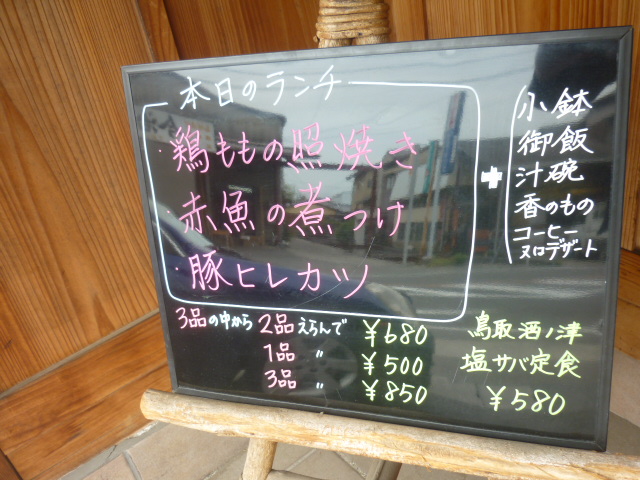 本日のランチ
・鶏ももの照焼き
・赤魚の煮つけ
・豚ヒレカツ
+
小鉢
御飯
汁碗
香のもの
コーヒー
ヌはデザート
3品の中から 2品えらんで ¥680
1品 〃 ¥500
3品 〃 ¥850
鳥取酒ノ津
塩サバ定食
¥580